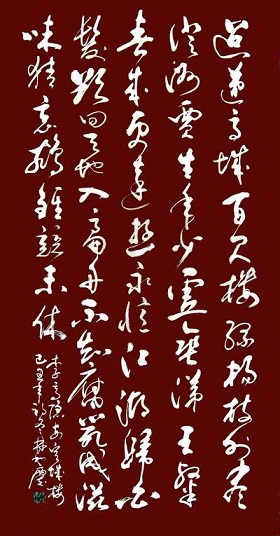 迢递高城百尺楼绿杨枝外尽
汀洲贾生年少虚垂涕王粲
春来更远游永忆江湖归白
发欲回天地入扁舟不知腐鼠成滋
味猜意鹓雏竟未休
李商隐安定城楼
己丑年